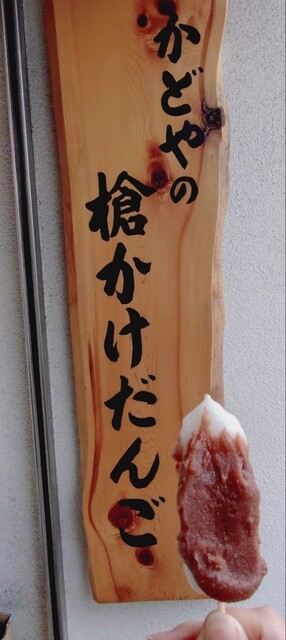 かどやの
槍かけだんご